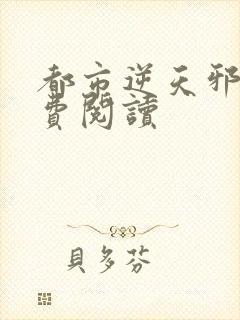 都市逆天邪
費閱讀
貝多芬